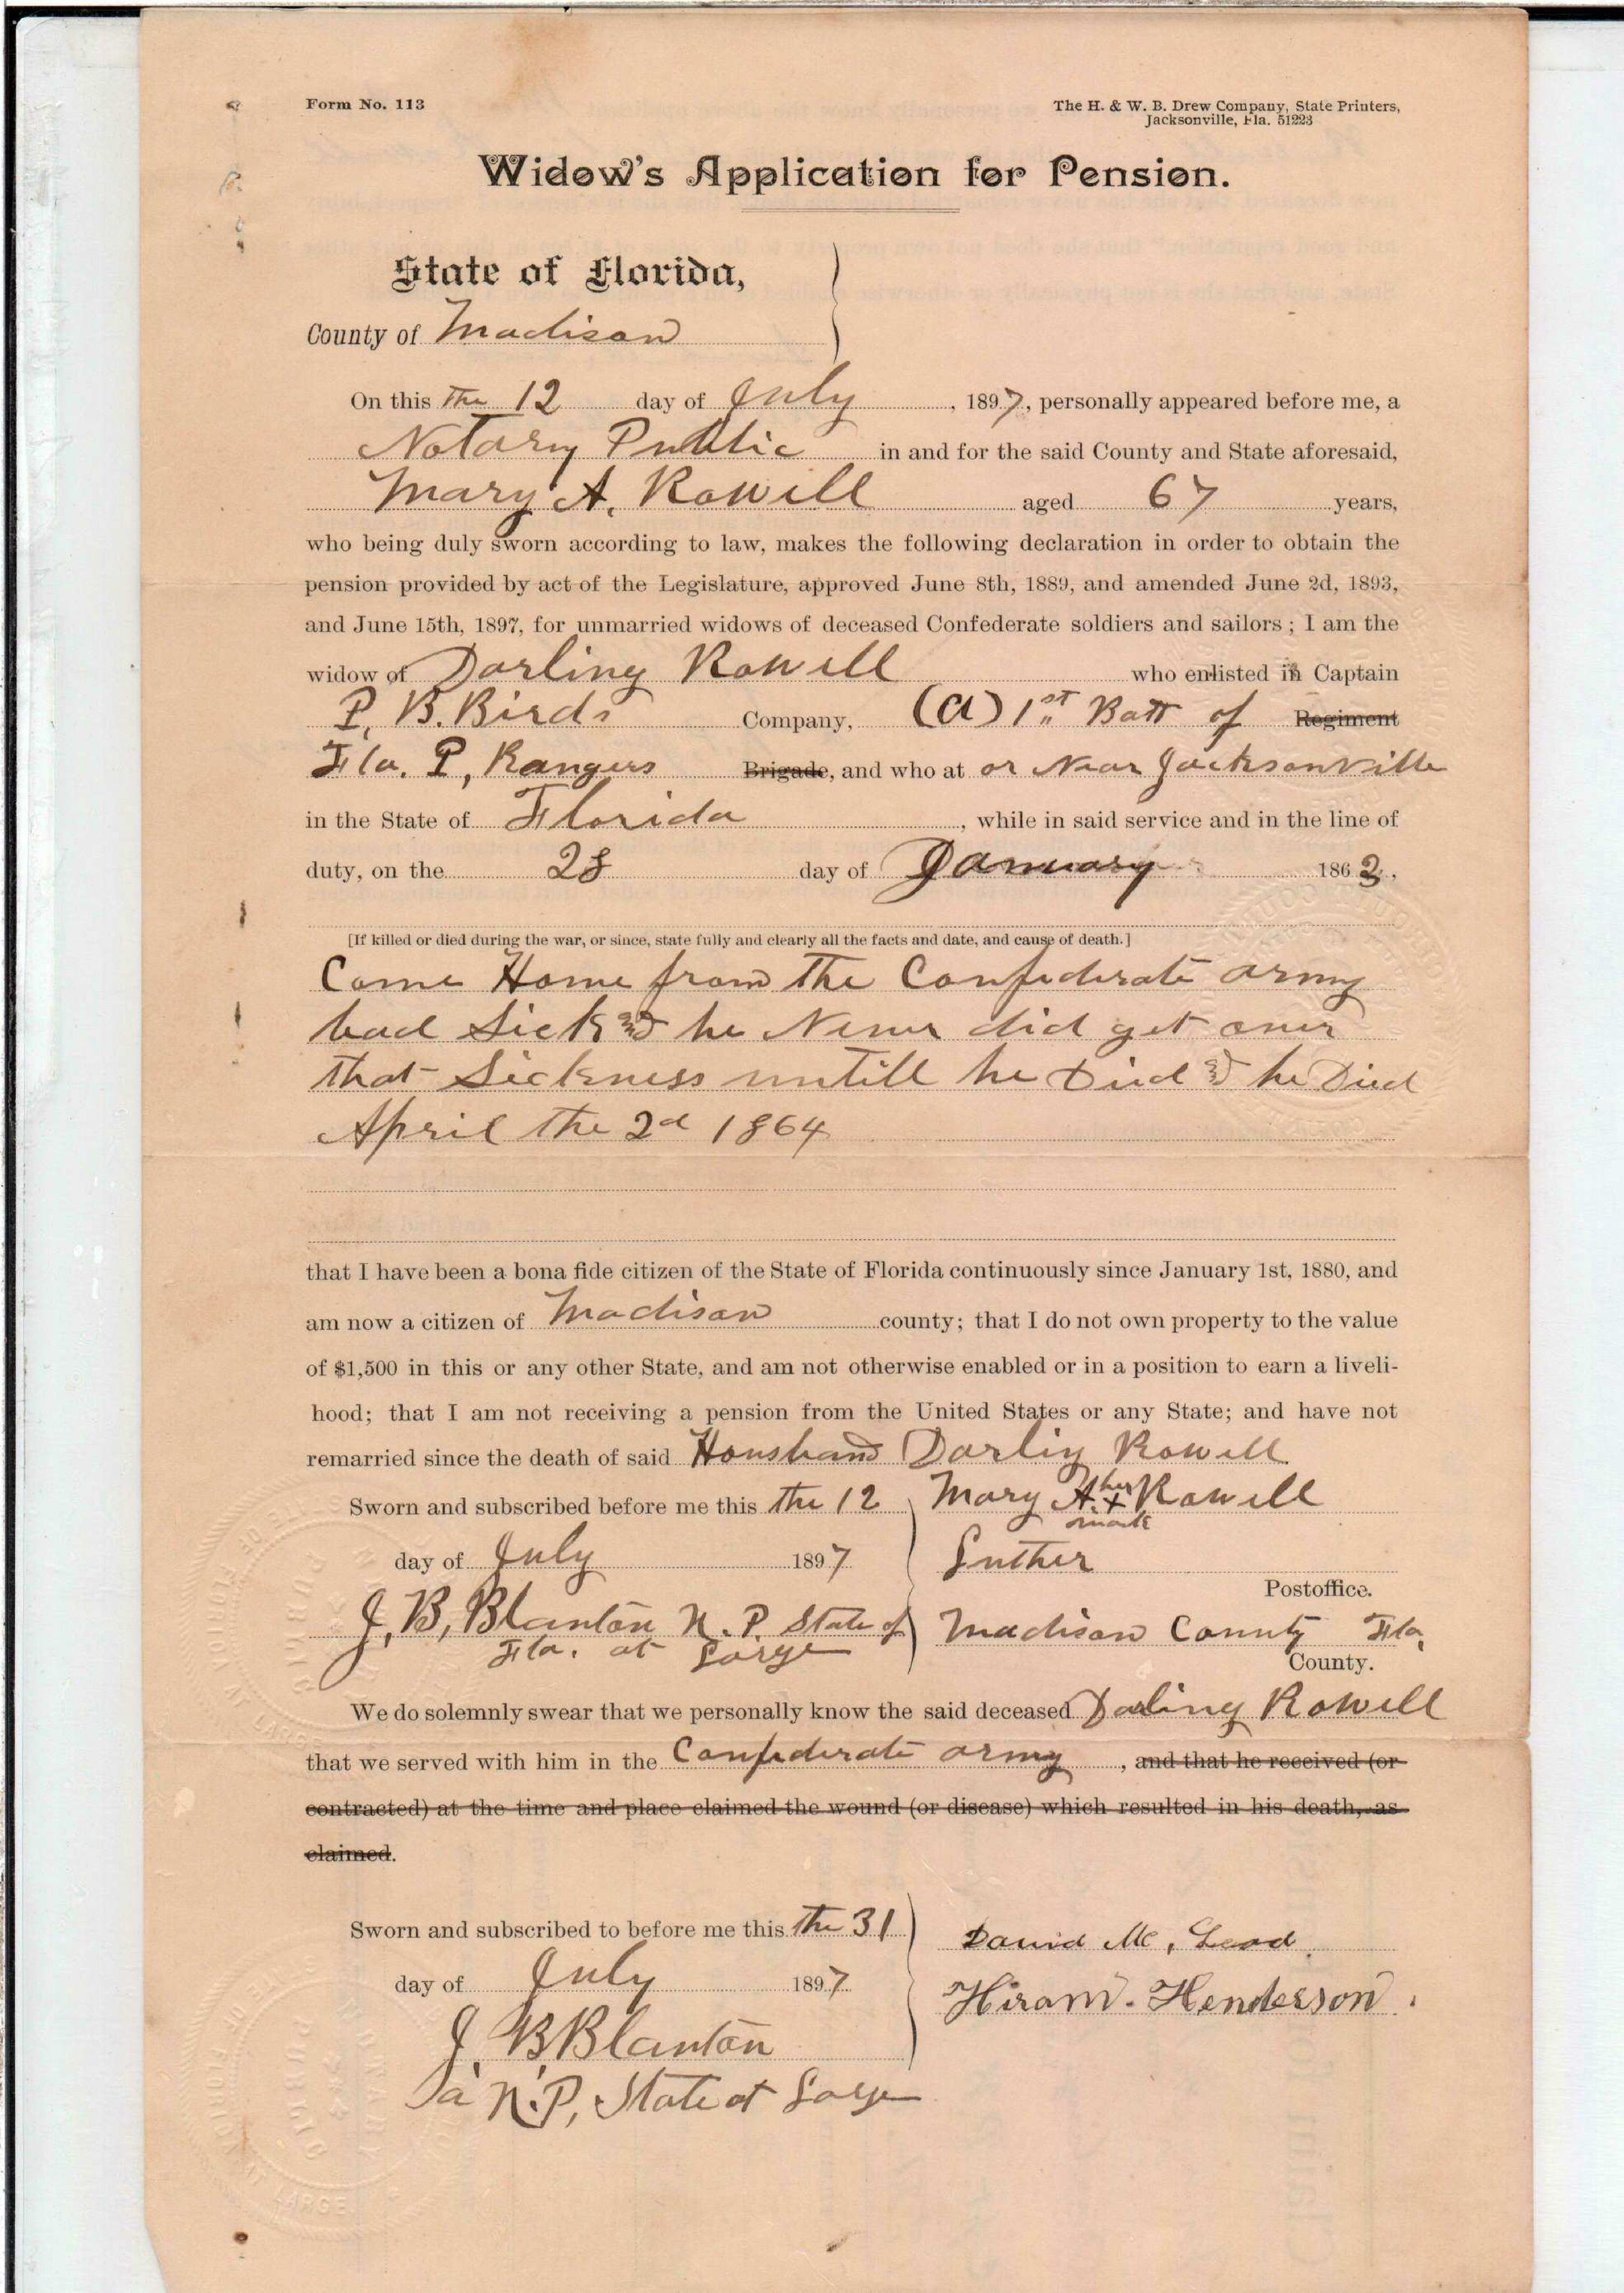 Form No. 113
The H. & W. B. Drew Company, State Printers,
Jacksonville, Fla. 51223
Widow's Application for Pension.
State of Florida,
County of Madison
On this the 12 day of July, 1897, personally appeared before me, a
Notary Public in and for the said County and State aforesaid,
Mary A. Rowell aged 67 years,
who being duly sworn according to law, makes the following declaration in order to obtain the
pension provided by act of the Legislature, approved June 8th, 1889, and amended June 2d, 1893,
and June 15th, 1897, for unmarried widows of deceased Confederate soldiers and sailors; I am the
widow of Darling Rowell who enlisted in Captain
P. B. Birds Company, (A) 1st Batt of Regiment
Fla. P, Rangers Brigade, and who at or Near Jacksonville
in the State of Florida, while in said service and in the line of
duty, on the 28 day of January 1863,
[If killed or died during the war, or since, state fully and clearly all the facts and date, and cause of death.]
Come Home from the Confederate army
bad Sick and he Never did get over
that Sickness untill he Died and he Died
April the 2d 1864
that I have been a bona fide citizen of the State of Florida continuously since January 1st, 1880, and
am now a citizen of Madison county; that I do not own property to the value
of $1,500 in this or any other State, and am not otherwise enabled or in a position to earn a liveli-
hood; that I am not receiving a pension from the United States or any State; and have not
remarried since the death of said Housband Darlig Rowell
Sworn and subscribed before me this the 12 Mary A. her x mark Rowell
day of July 1897 Luther
Postoffice.
J. B, Blanton N. P. State of Madison County Fla,
Fla. at Large
County.
We do solemnly swear that we personally know the said deceased Darling Rowell
that we served with him in the Confederate army, and that he received (or
contracted) at the time and place claimed the wound (or disease) which resulted in his death, as
claimed.
Sworn and subscribed to before me this the 31 David Mc, Leod
day of July 1897 Hiram. Henderson.
J. B. Blanton
N.P, State at Large